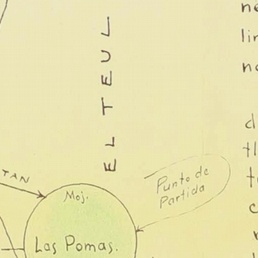 EL TEUL
TAN
Moj.
Las Pomas.
Punto de
Partida
ne
lin
no
d
tl
t
c